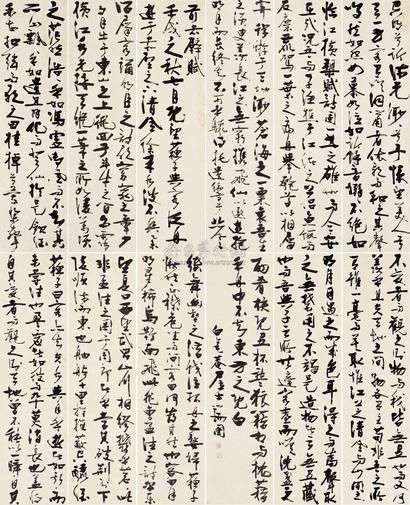 前赤壁賦
壬戌之秋七月既望蘇子與客泛舟
遊于赤壁之下清風徐來水波不興舉
酒屬客誦明月之詩歌窈窕之章少
焉月出於東山之上徘徊於斗牛之間白露
橫江水光接天縱一葦之所如凌萬頃
之茫然浩浩乎如馮虛御風而不知其所
止飄飄乎如遺世獨立羽化而登仙於是飲酒
樂甚扣舷而歌之歌曰桂棹兮蘭槳擊
空明兮泝流光渺渺兮余懷望美人兮
天一方客有吹洞簫者倚歌而和之其聲
嗚嗚然如怨如慕如泣如訴餘音嫋嫋不絕如
縷舞幽壑之潛蛟泣孤舟之嫠婦蘇子
愀然正襟危坐而問客曰何為其然也客曰月
明星稀烏鵲南飛此非曹孟德之詩乎
望武昌山川相繆鬱乎蒼蒼此
非孟德之困于周郎者乎方其破荊州下
江陵順流而東也舳艫千里旌旗蔽空釃酒
臨江橫槊賦詩固一世之雄也而今安
在哉況吾與子漁樵于江渚之上侶魚蝦而
友麋鹿駕一葉之扁舟舉匏樽以相屬
寄蜉蝣于天地渺滄海之一粟哀吾生
之須臾羨長江之無窮挾飛仙以遨遊抱
明月而長終知不可乎驟得托遺響於悲風
蘇子曰客亦知夫水與月乎逝者如斯而
未嘗往也盈虛者如彼而卒莫消長也蓋將
自其變者而觀之則天地曾不能以一瞬自其
不變者而觀之則物與我皆無盡也而又何
羨乎且夫天地之間物各有主苟非吾之所
有雖一毫而莫取惟江上之清風與山間之
明月耳得之而為聲目遇之而成色取
之無禁用之不竭是造物者之無盡藏
也而吾與子之所共適客喜而笑洗盞更酌
肴核既盡杯盤狼藉相與枕藉
乎舟中不知東方之既白